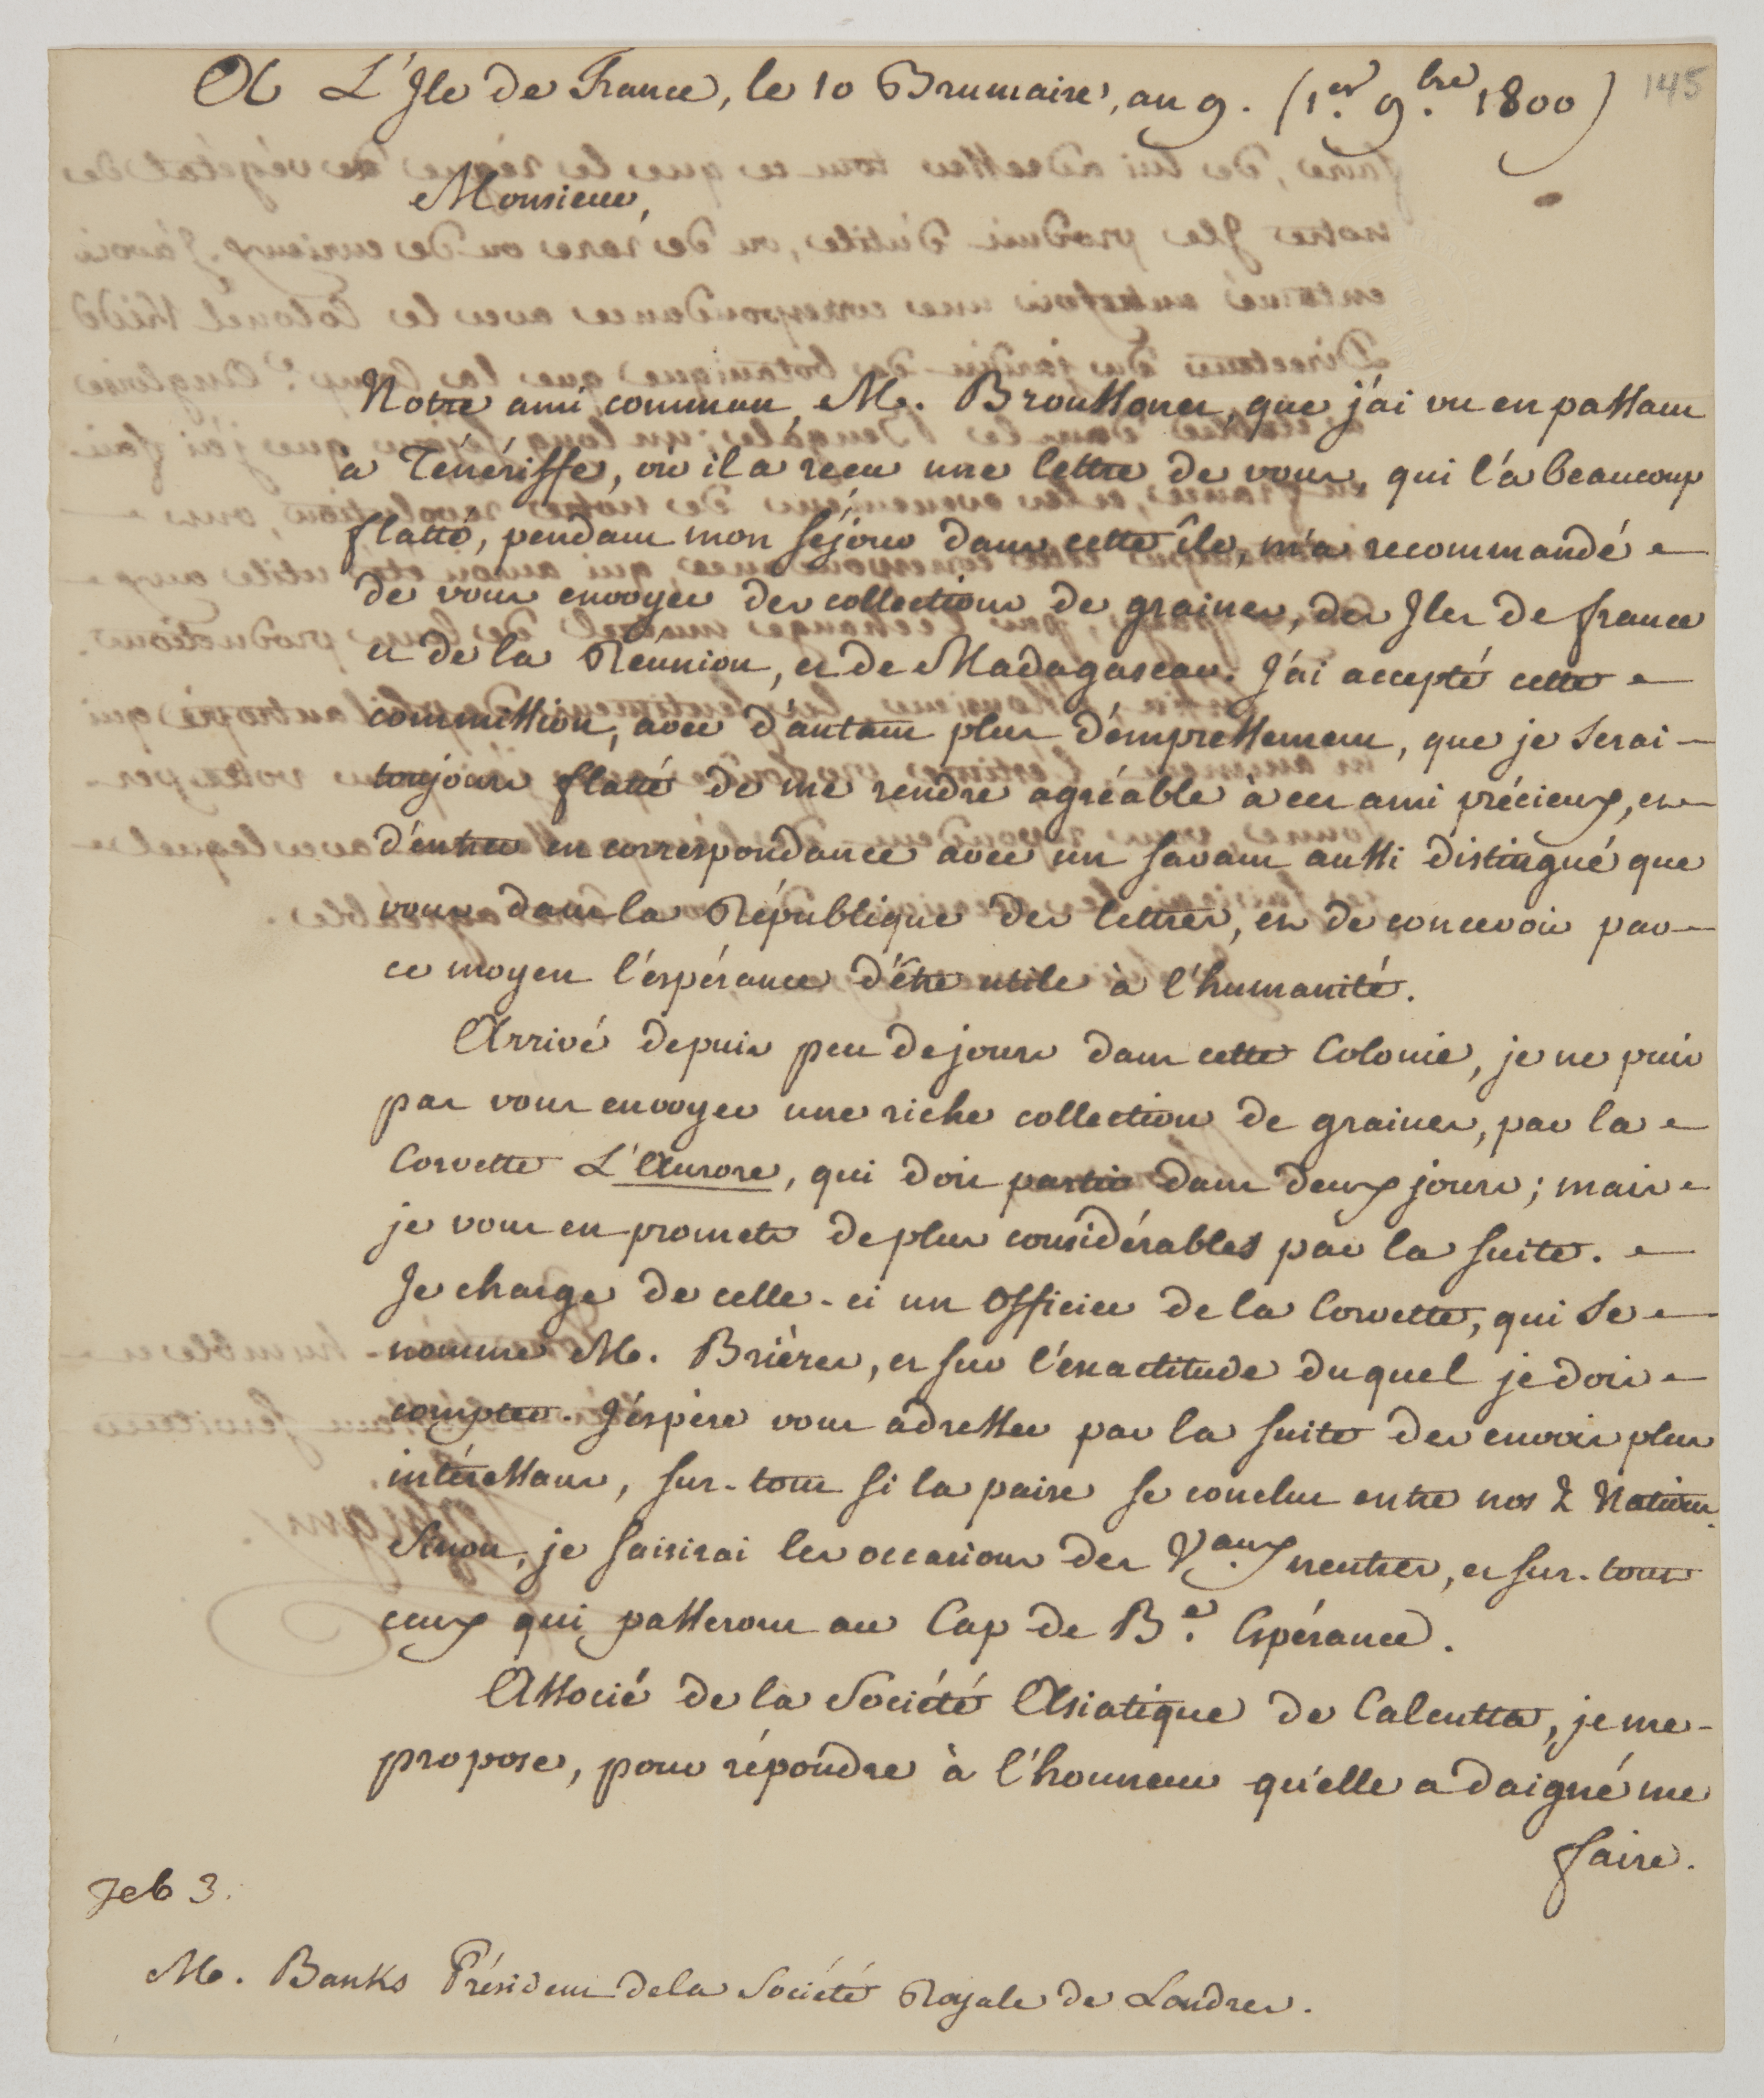 A L'Ile de France, le 10 Brumaire, an 9. (1.er 9.bre 1800)
145
Monsieur,
Notre ami commun M. Broussonet, que j'ai vu en passant
a Ténériffe, où il a recu une lettre de vous, qui l'a beaucoup
flatté, pendant mon séjour dans cette île, m'a recommandé
de vous envoyer des collections de graines, des Iles de france
et de la Réunion, et de Madagascar. J'ai accepté cette
commission, avec d'autant plus d'empressement, que je serai
toujours flatté de me rendre agréable à cet ami précieux, et
d'entrer en correspondance avec un savant aussi distingué que
vous dans la République des lettres, et de concevoir par
ce moyen l'espérance d'être utile à l'humanité.
Arrivé depuis peu de jours dans cette Colonie, je ne puis
pas vous envoyer une riche collection de graines, par la
Corvette L'Aurore, qui doit partir dans deux jours; mais
je vous en promets de plus considérables par la suite.
Je charge de celle-ci un Officier de la Corvette, qui se
nomme M. Brières, et sur l'exactitude duquel je dois
compter. J'espère vous adresser par la suite des envois plus
intéressans, sur-tout si la paix se conclut entre nos 2 Nations.
Sinon, je saisirai les occasions des V.aux neutres, et sur-tout
ceux qui passeront au Cap de B.e Espérance.
Associé de la Société Asiatique de Calcutta, je me
propose, pour répondre à l'honneur qu'elle a daigné me
faire.
Feb 3.
M. Banks Président de la Société Royale de Londres.